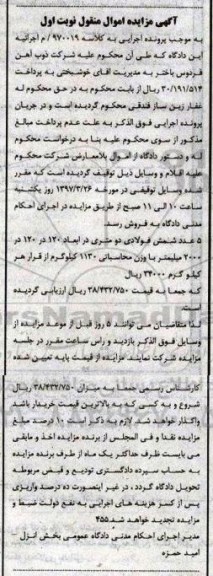 آگهی مزایده اموال منقول نوبت اول
به موجب پرونده اجرایی به کلاسه ۹۷۰۰۱۹ / م اجرائیه
این دادگاه که طی آن محکوم علیه شرکت ذوب آهن
فردوس باختر به مدیریت آقای خوشبختی به پرداخت
۳۰/۱۹۱/۵۱۴ ریال از بابت محکوم به در حق محکوم له
غفار زین ساز فندقی محکوم گردیده است و در جریان
پرونده اجرایی فوق الذکر به علت عدم پرداخت مبالغ
مذکور از سوی محکوم علیه بنا به درخواست محکوم
له و دستور دادگاه از اموال بلامعارض شرکت محکوم
علیه اقلام و وسایل ذیل توقیف گردیده است که مقرر
شده وسایل توقیفی در مورخه ۱۳۹۷/۳/۲۶ روز یکشنبه
ساعت ۱۰ الی ۱۱ صبح از طریق مزایده در اجرای احکام
مدنی دادگاه به فروش رسد.
۵ عدد شمش فولادی دو متری در ابعاد ۱۲۰ در ۱۲۰ در
۲۰۰۰ میلیمتر با وزن محاسباتی ۱۱۳۰ کیلوگرم از قرار هر
کیلو گرم ۳۴۰۰۰ ریال
که جمعا به قیمت ۳۸/۴۳۲/۷۵۰ ریال ارزیابی گردیده
است
لذا متقاضیان می توانند ۵ روز قبل از موعد مزایده از
وسایل فوق الذکر بازدید و راس ساعت مقرر در جلسه
مزایده شرکت نمایند. مزایده از قیمت پایه تعیین شده
کارشناس رسمی جمعا به میزان ۳۸/۴۳۲/۷۵۰ ریال
شروع و به کسی که به بالاترین قیمت خریدار باشد
واگذار خواهد شد. لازم به ذکر است ۱۰ درصد مبلغ
مزایده نقدا و فی المجلس از برنده مزایده اخذ و مابقی
می بایست ظرف حداکثر یک ماه از طرف برنده مزایده
به حساب سپرده دادگستری تودیع و قبض مربوطه
تحویل دادگاه گردد، در غیر اینصورت ده درصد واریزی
پس از کسر هزینه های اجرایی به نفع دولت ضبط و
مزایده تجدید خواهد شد.۴۵۵
مدیر اجرای احکام مدنی دادگاه عمومی بخش انزل -
امید حمزه